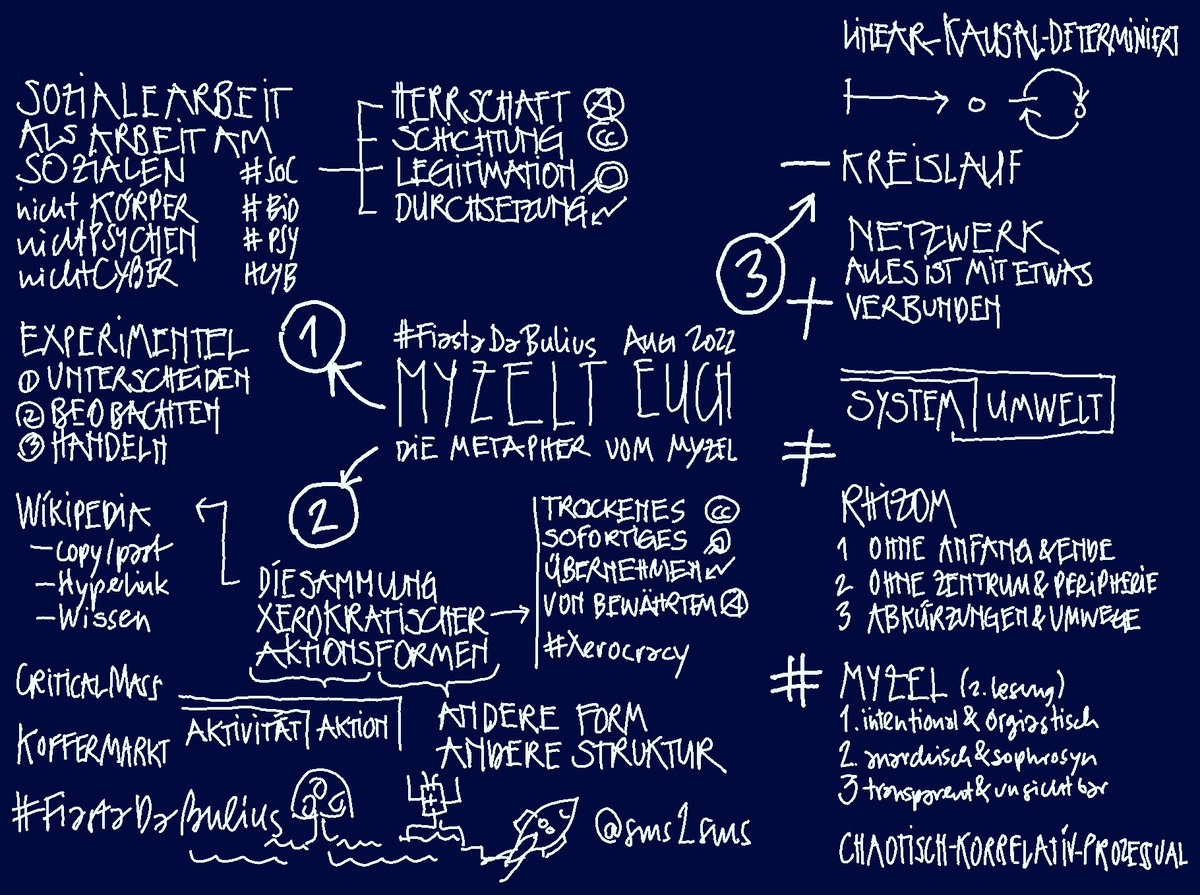 SOZIALEARBEIT
ALS ARBEIT AM
SOZIALEN #SOC
nicht KÖRPER #BIO
nicht PSYCHEN #PSY
nicht CYBER #CYB
HERRSCHAFT Ⓐ
SCHICHTUNG cc
LEGITIMATION
DURCHSETZUNG
EXPERIMENTEL
① UNTERSCHEIDEN
② BEOBACHTEN
③ HANDELN
1
#FiastaDaBulius Aug 2022
MYZELT EUCH
DIE METAPHER VOM MYZEL
2
WIKIPEDIA
- Copy/past
- Hyperlink
- Wissen
DIE SAMMUNG
XEROKRATISCHER
AKTIONSFORMEN
TROCKENES cc
SOFORTIGES
ÜBERNEHMEN
VON BEWÄHRTEM Ⓐ
#Xerocracy
CRITICALMASS
KOFFERMARKT
AKTIVITÄT AKTION
ANDERE FORM
ANDERE STRUKTUR
#FiastaDaBulius
@sms2sms
LINEAR-KAUSAL-DETERMINIERT
3
- KREISLAUF
NETZWERK
ALLES IST MIT ETWAS
+ VERBUNDEN
SYSTEM UMWELT
≠
RHIZOM
1 OHNE ANFANG & ENDE
2 OHNE ZENTRUM & PERIPHERIE
3 ABKÜRZUNGEN & UMWEGE
# MYZEL (2. lesung)
1. intentional & orgiastisch
2. anarchisch & sophrosyn
3 transparent & unsichtbar
CHAOTISCH-KORRELATIV-PROZESSUAL